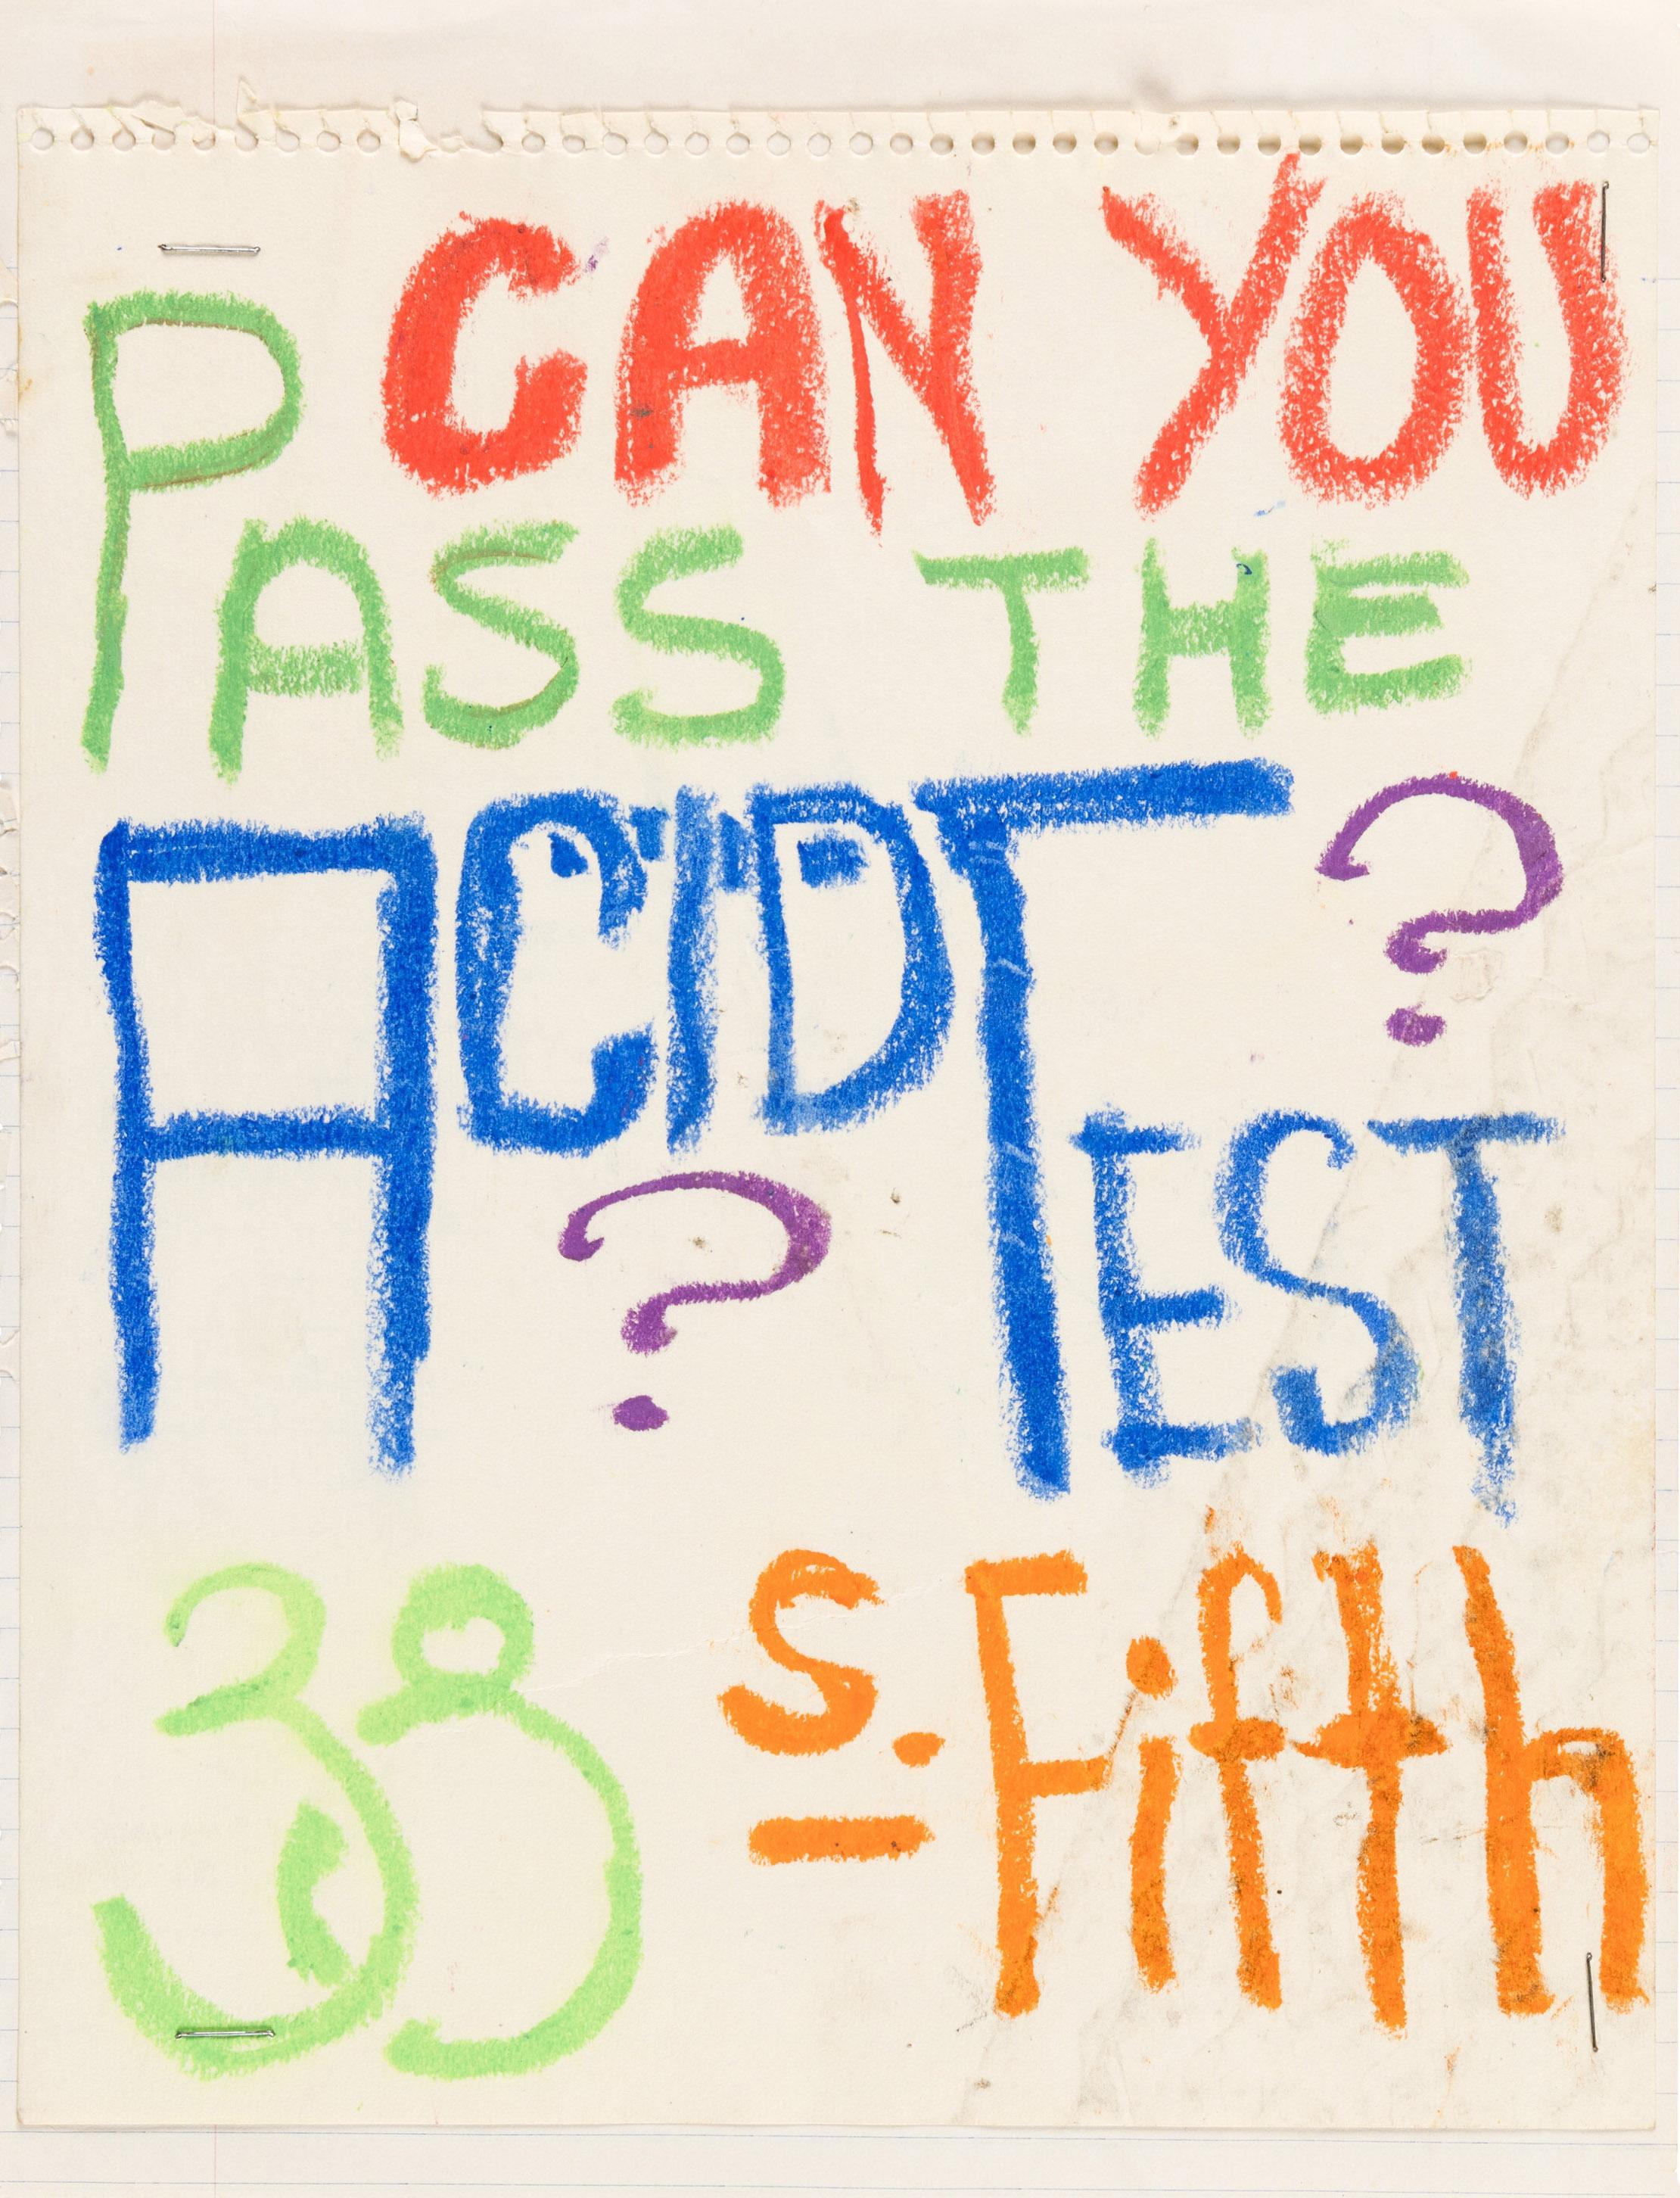 CAN YOU
PASS THE
ACID TEST ?
?
38 S. Fifth